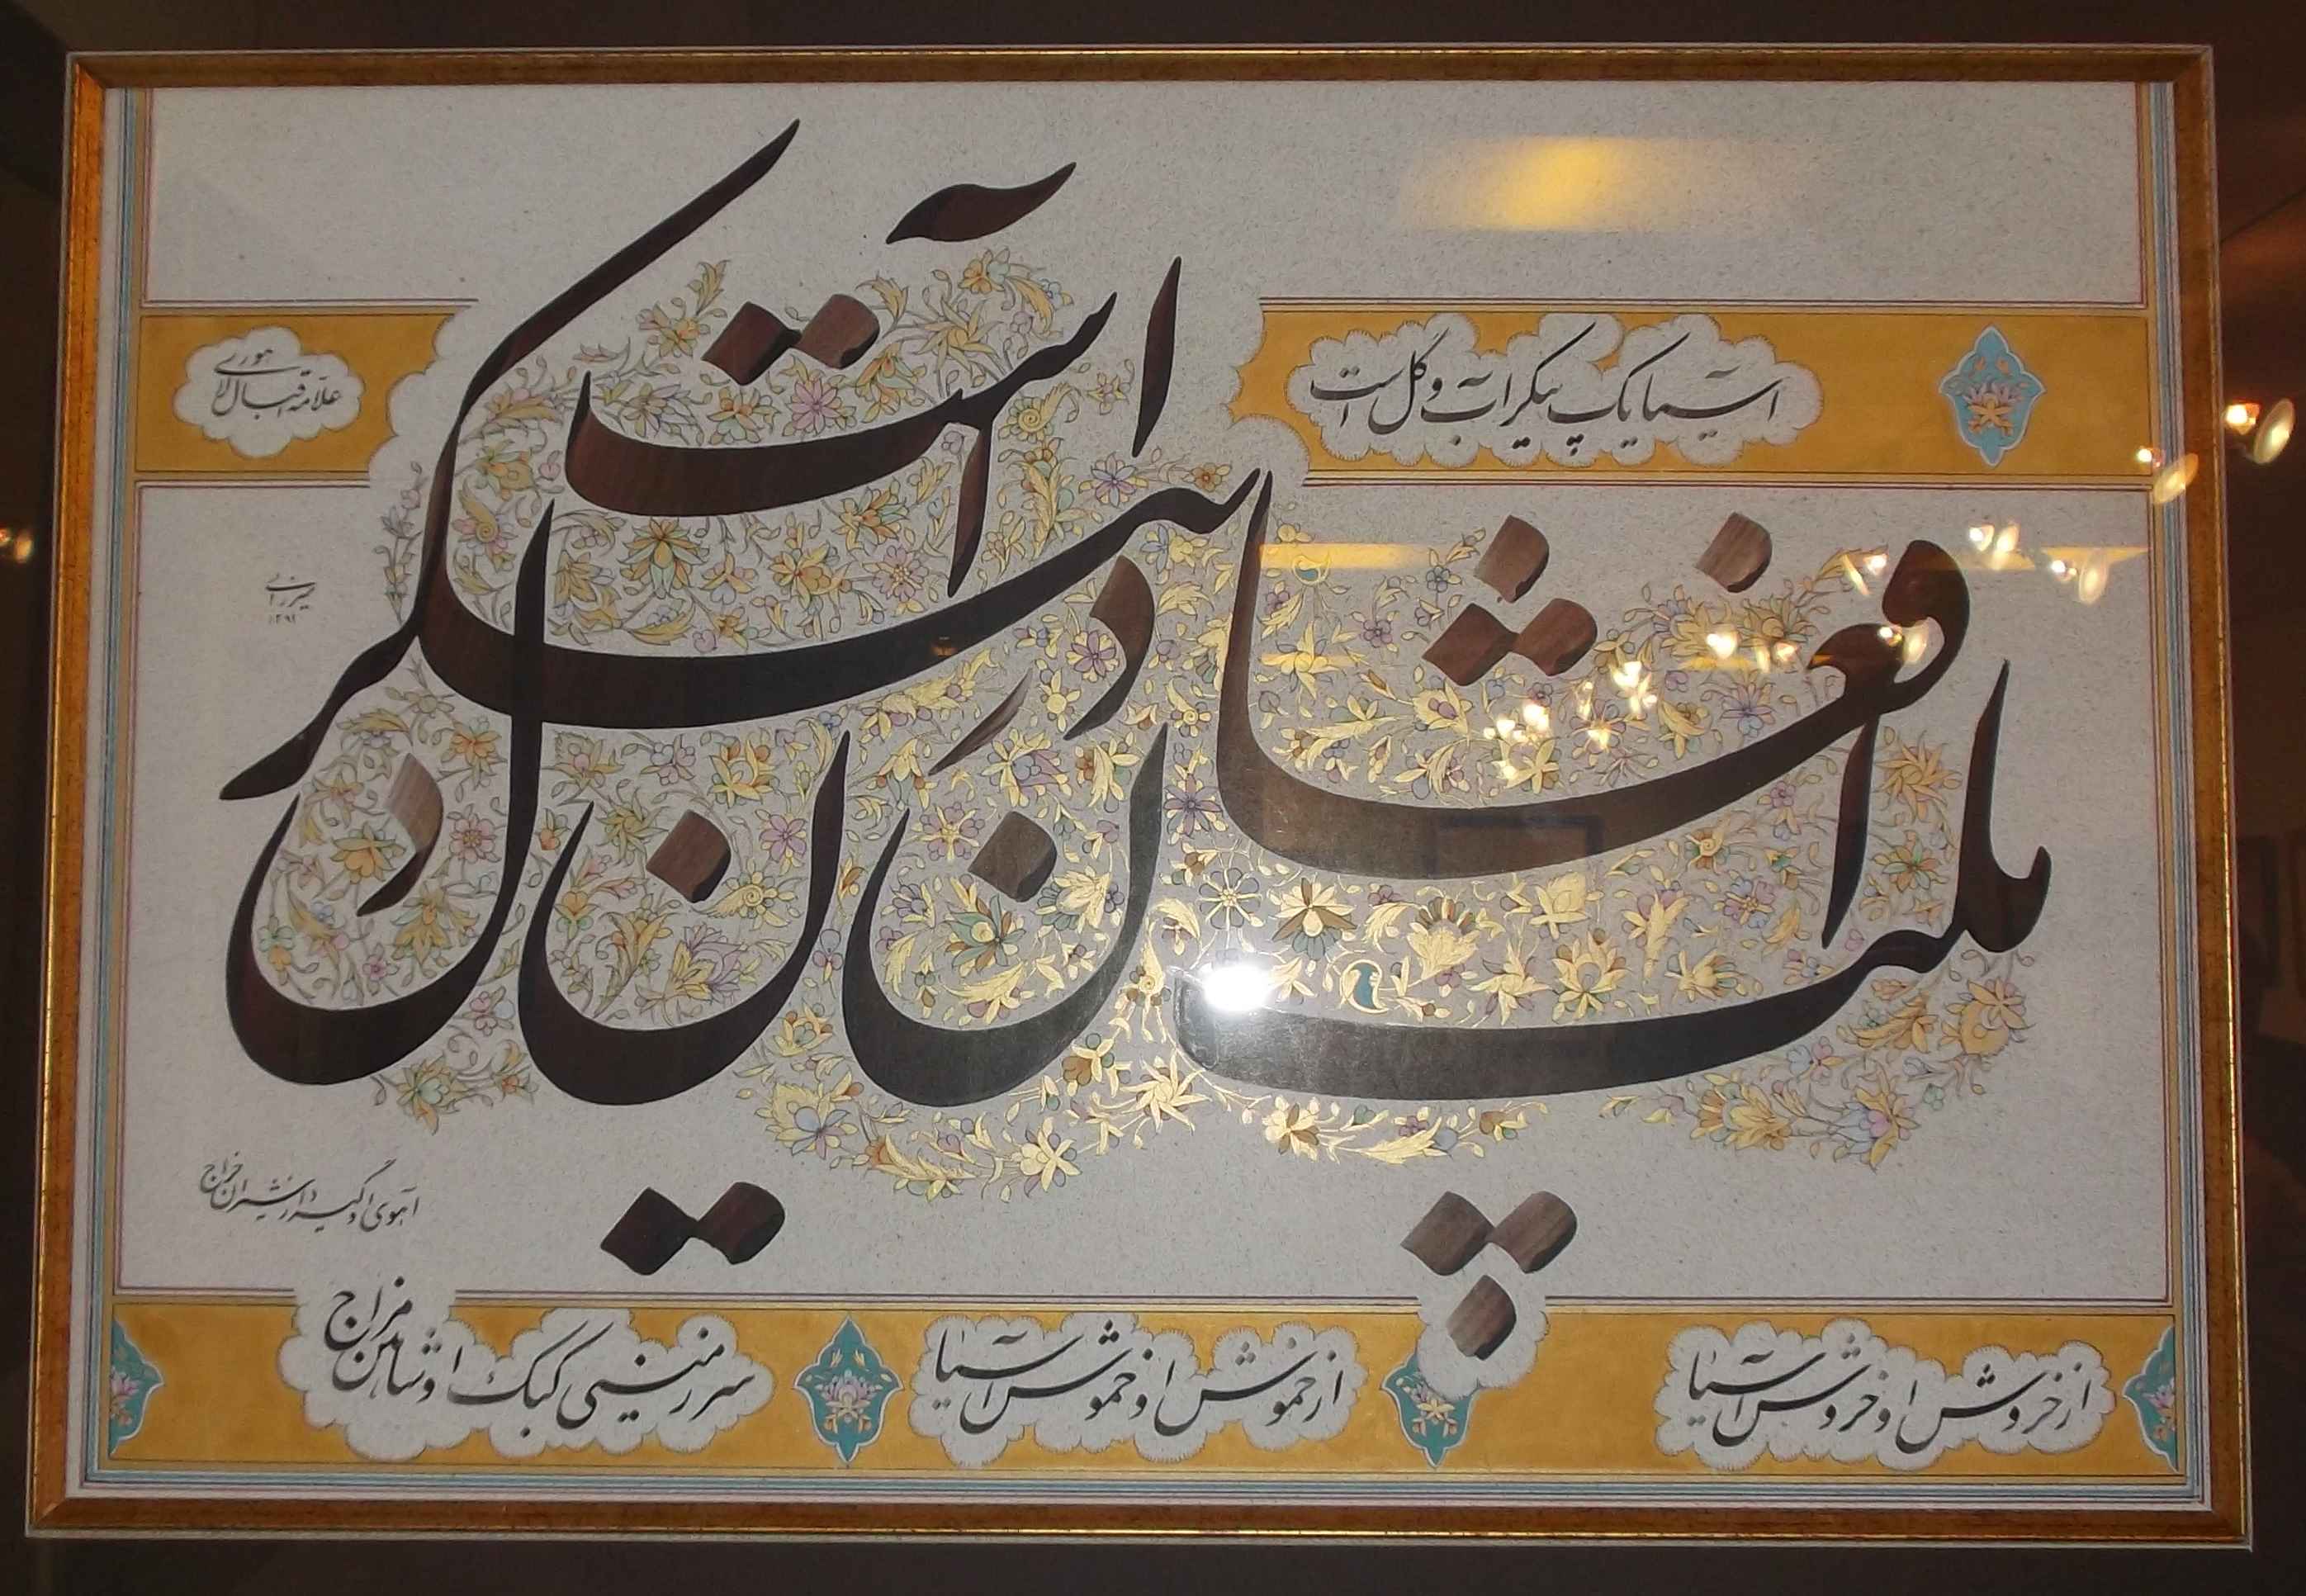 آسیا یک پیکر آب و گل است
علامه اقبال لاهوری
ملت افغان در آن پیکر دل است
۱۳۹۱
از خروش او خروش آسیا
از خموش او خموش آسیا
سرزمینی کبک او شاهین مزاج
آهوی او گیرد از شیران خراج